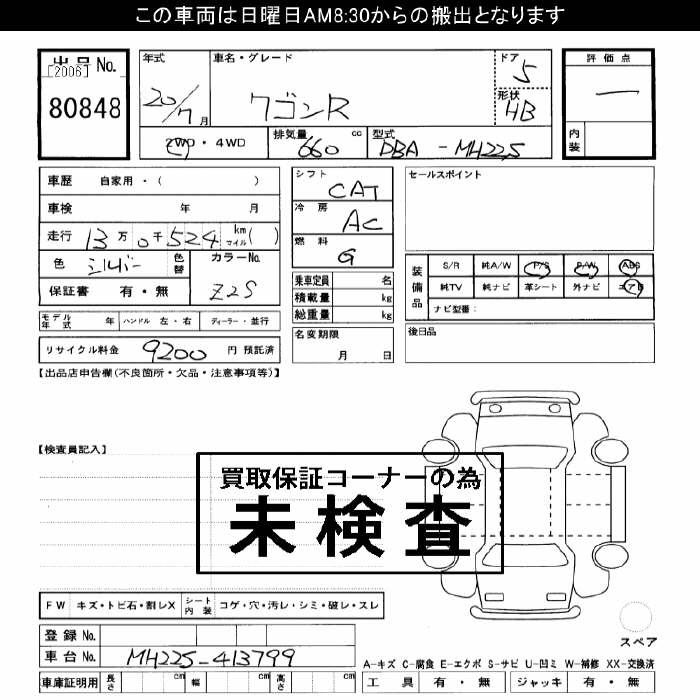 この車両は日曜日AM8:30からの搬出となります
出品No.
[2006]
80848
年式
20/7月
車名・グレード
ワゴンR
ドア
5
形状
HB
評価点
一
内装
2WD・4WD
排気量
660 cc
型式
DBA-MH22S
車歴 自家用・( )
車検 年 月
走行 13万0千524 km マイル( )
色 シルバー 色替
カラーNo. Z2S
保証書 有・無
モデル年式 年 ハンドル 左・右 ディーラー・並行
リサイクル料金 9200 円 預託済
シフト CAT
冷房 AC
燃料 G
乗車定員 名
積載量 kg
総重量 kg
名変期限
月 日
セールスポイント
装備品
S/R 純A/W P/S P/W ABS
純TV 純ナビ 革シート 外ナビ エアB
ナビ型番:
後日品
【出品店申告欄(不良箇所・欠品・注意事項等)】
【検査員記入】
買取保証コーナーの為
未検査
FW キズ・トビ石・割レX シート内装 コゲ・穴・汚レ・シミ・破レ・スレ
登録No.
車台No. MH22S-413799
車庫証明用 長さ cm 幅 cm 高さ cm
スペア
A-キズ C-腐食 E-エクボ S-サビ U-凹ミ W-補修 XX-交換済
工具 有・無 ジャッキ 有・無